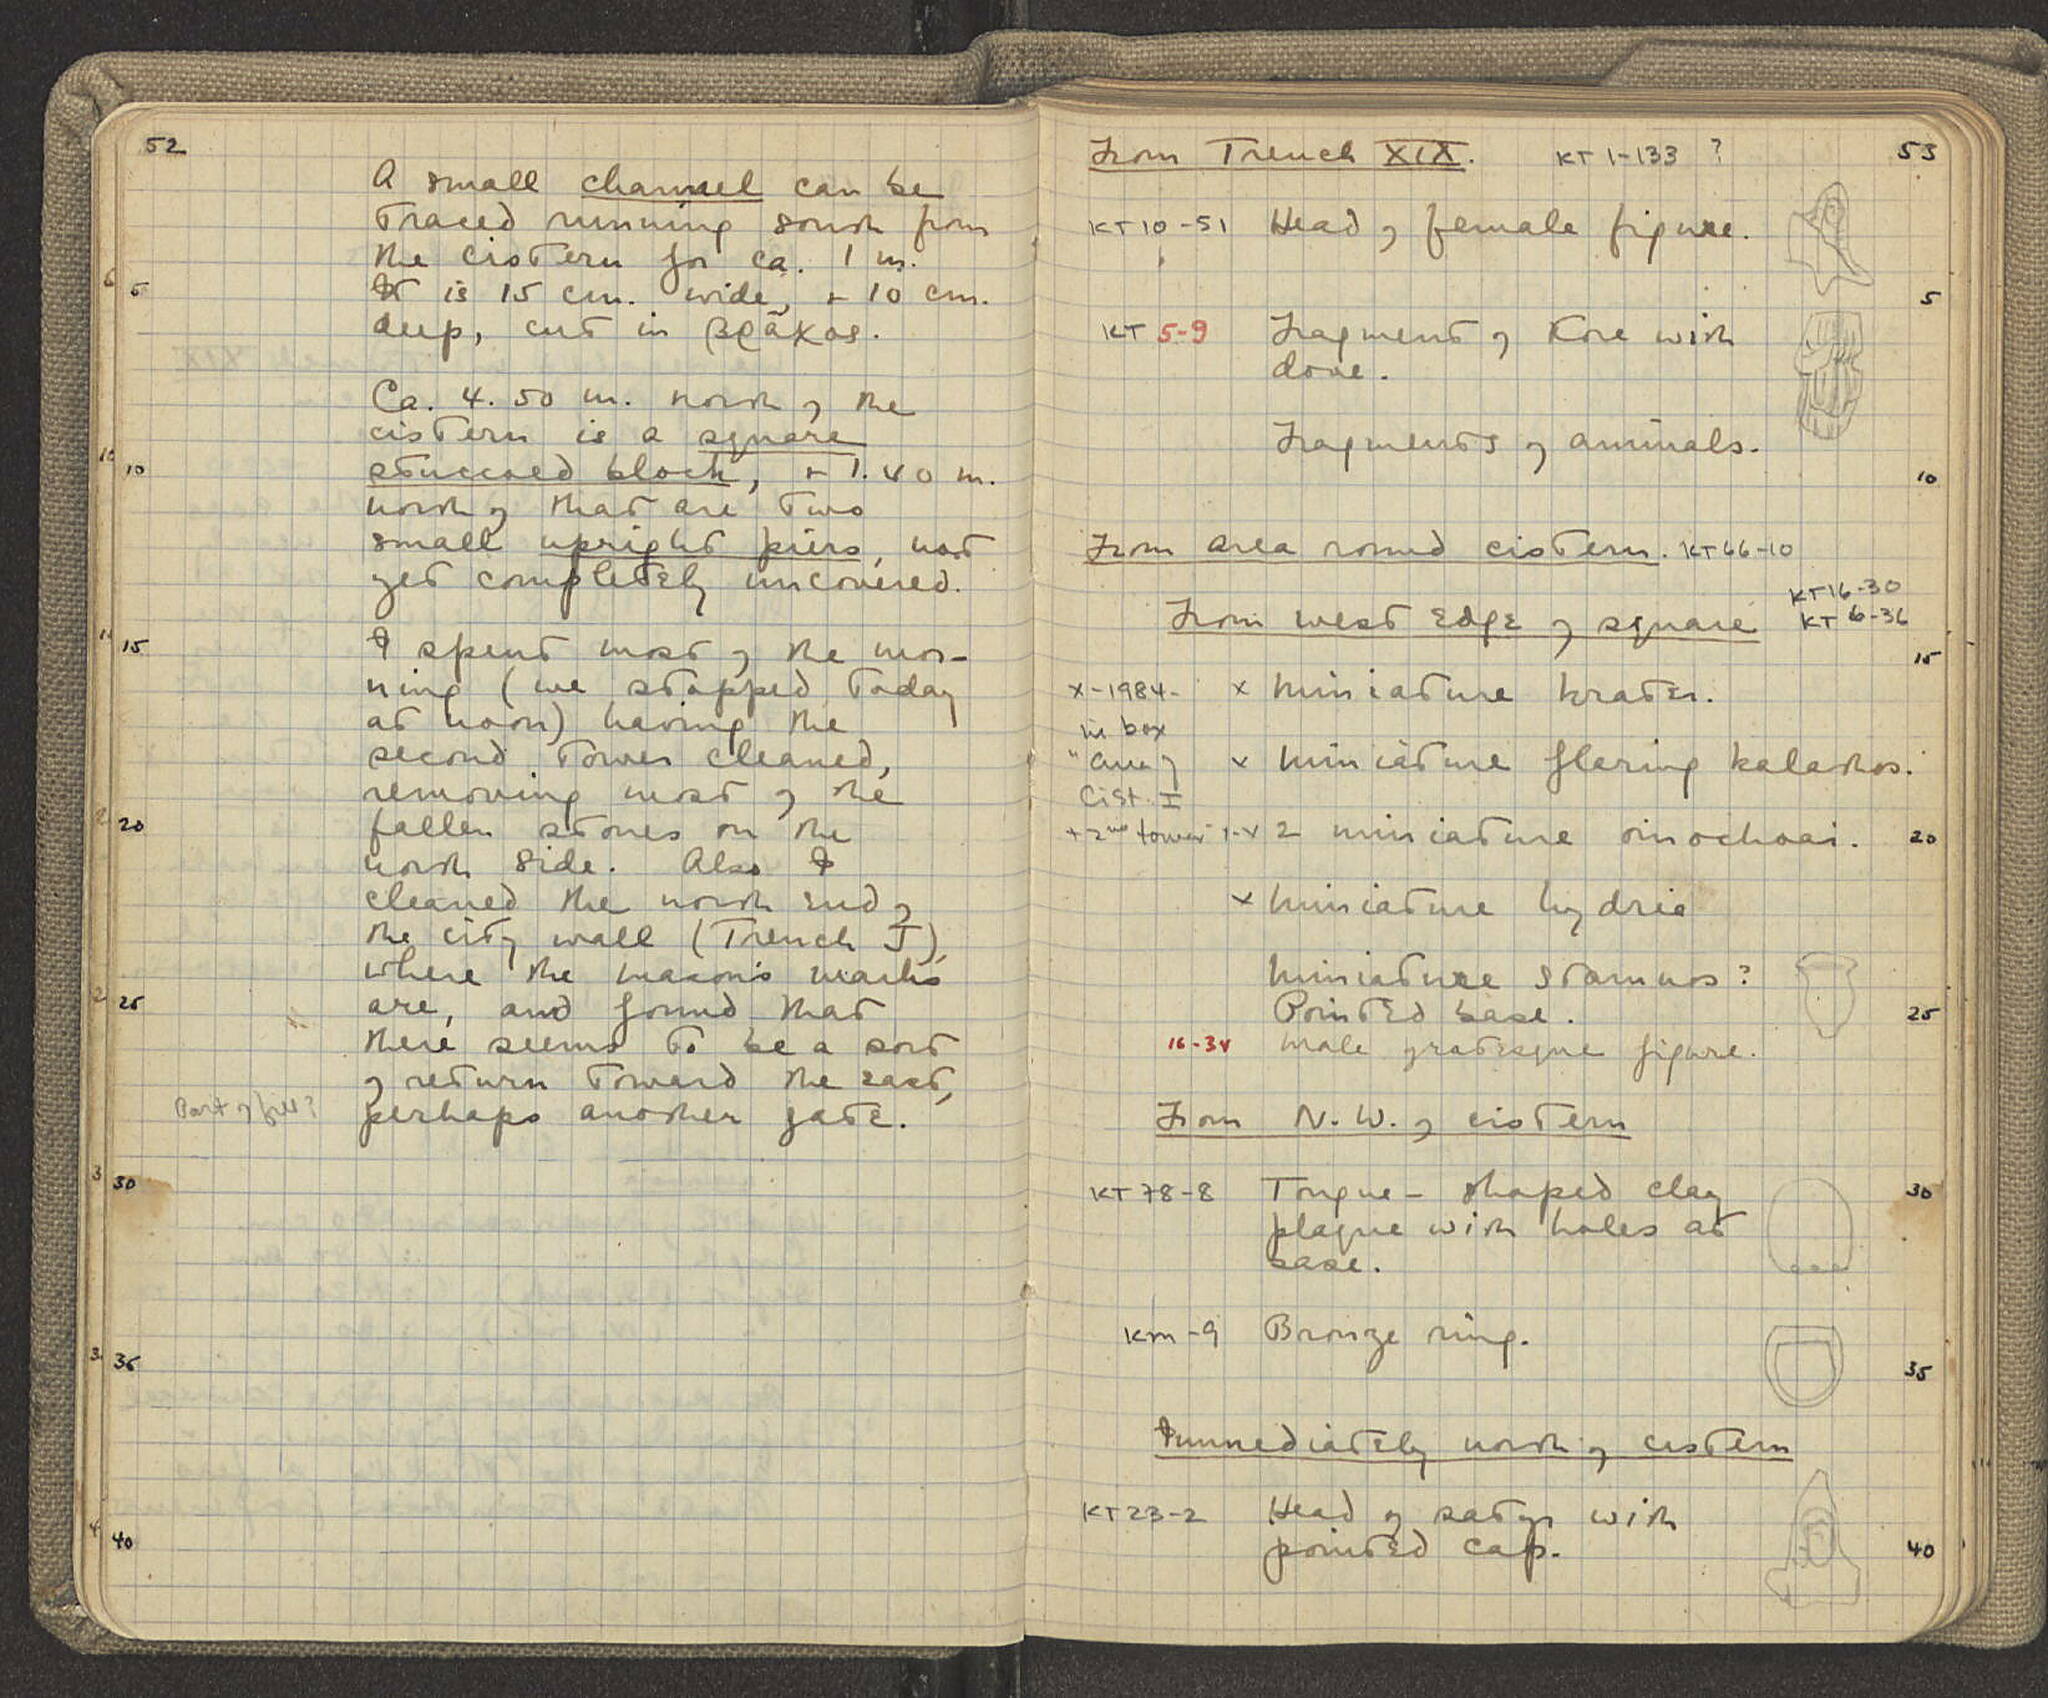 52
A small channel can be
traced running south from
the cistern for ca. 1 m.
5 It is 15 cm. wide, + 10 cm.
deep, cut in βράχος.
Ca. 4.50 m. north of the
cistern is a square
10 stuccoed block, + 1.40 m.
north of that are two
small upright piers, not
yet completely uncovered.
15 I spent most of the mor-
ning (we stopped today
at noon) having the
second tower cleaned,
removing most of the
20 fallen stones on the
north side. Also I
cleaned the north end of
the city wall (Trench J),
where the mason's marks
25 are, and found that
there seems to be a sort
of return toward the east,
Part of fill? perhaps another gate.
30
35
40
From Trench XIX. KT 1-133 ? 53
KT 10-51 Head of female figure.
5
KT 5-9 Fragment of Kore with
dove.
Fragments of animals.
10
From area round cistern. KT 66-10
KT 16-30
From west edge of square KT 6-36
15
x-1984- x Miniature krater.
in box
"area of x Miniature flaring kalathos.
Cist. I
+ 2nd tower" 1-x 2 miniature oinochoai. 20
x Miniature hydria
Miniature stamnos?
Pointed base. 25
16-34 Male grotesque figure.
From N.W. of cistern
KT 78-8 Tongue-shaped clay 30
plaque with holes at
base.
KM-9 Bronze ring.
35
Immediately north of cistern
KT 23-2 Head of satyr with
pointed cap. 40